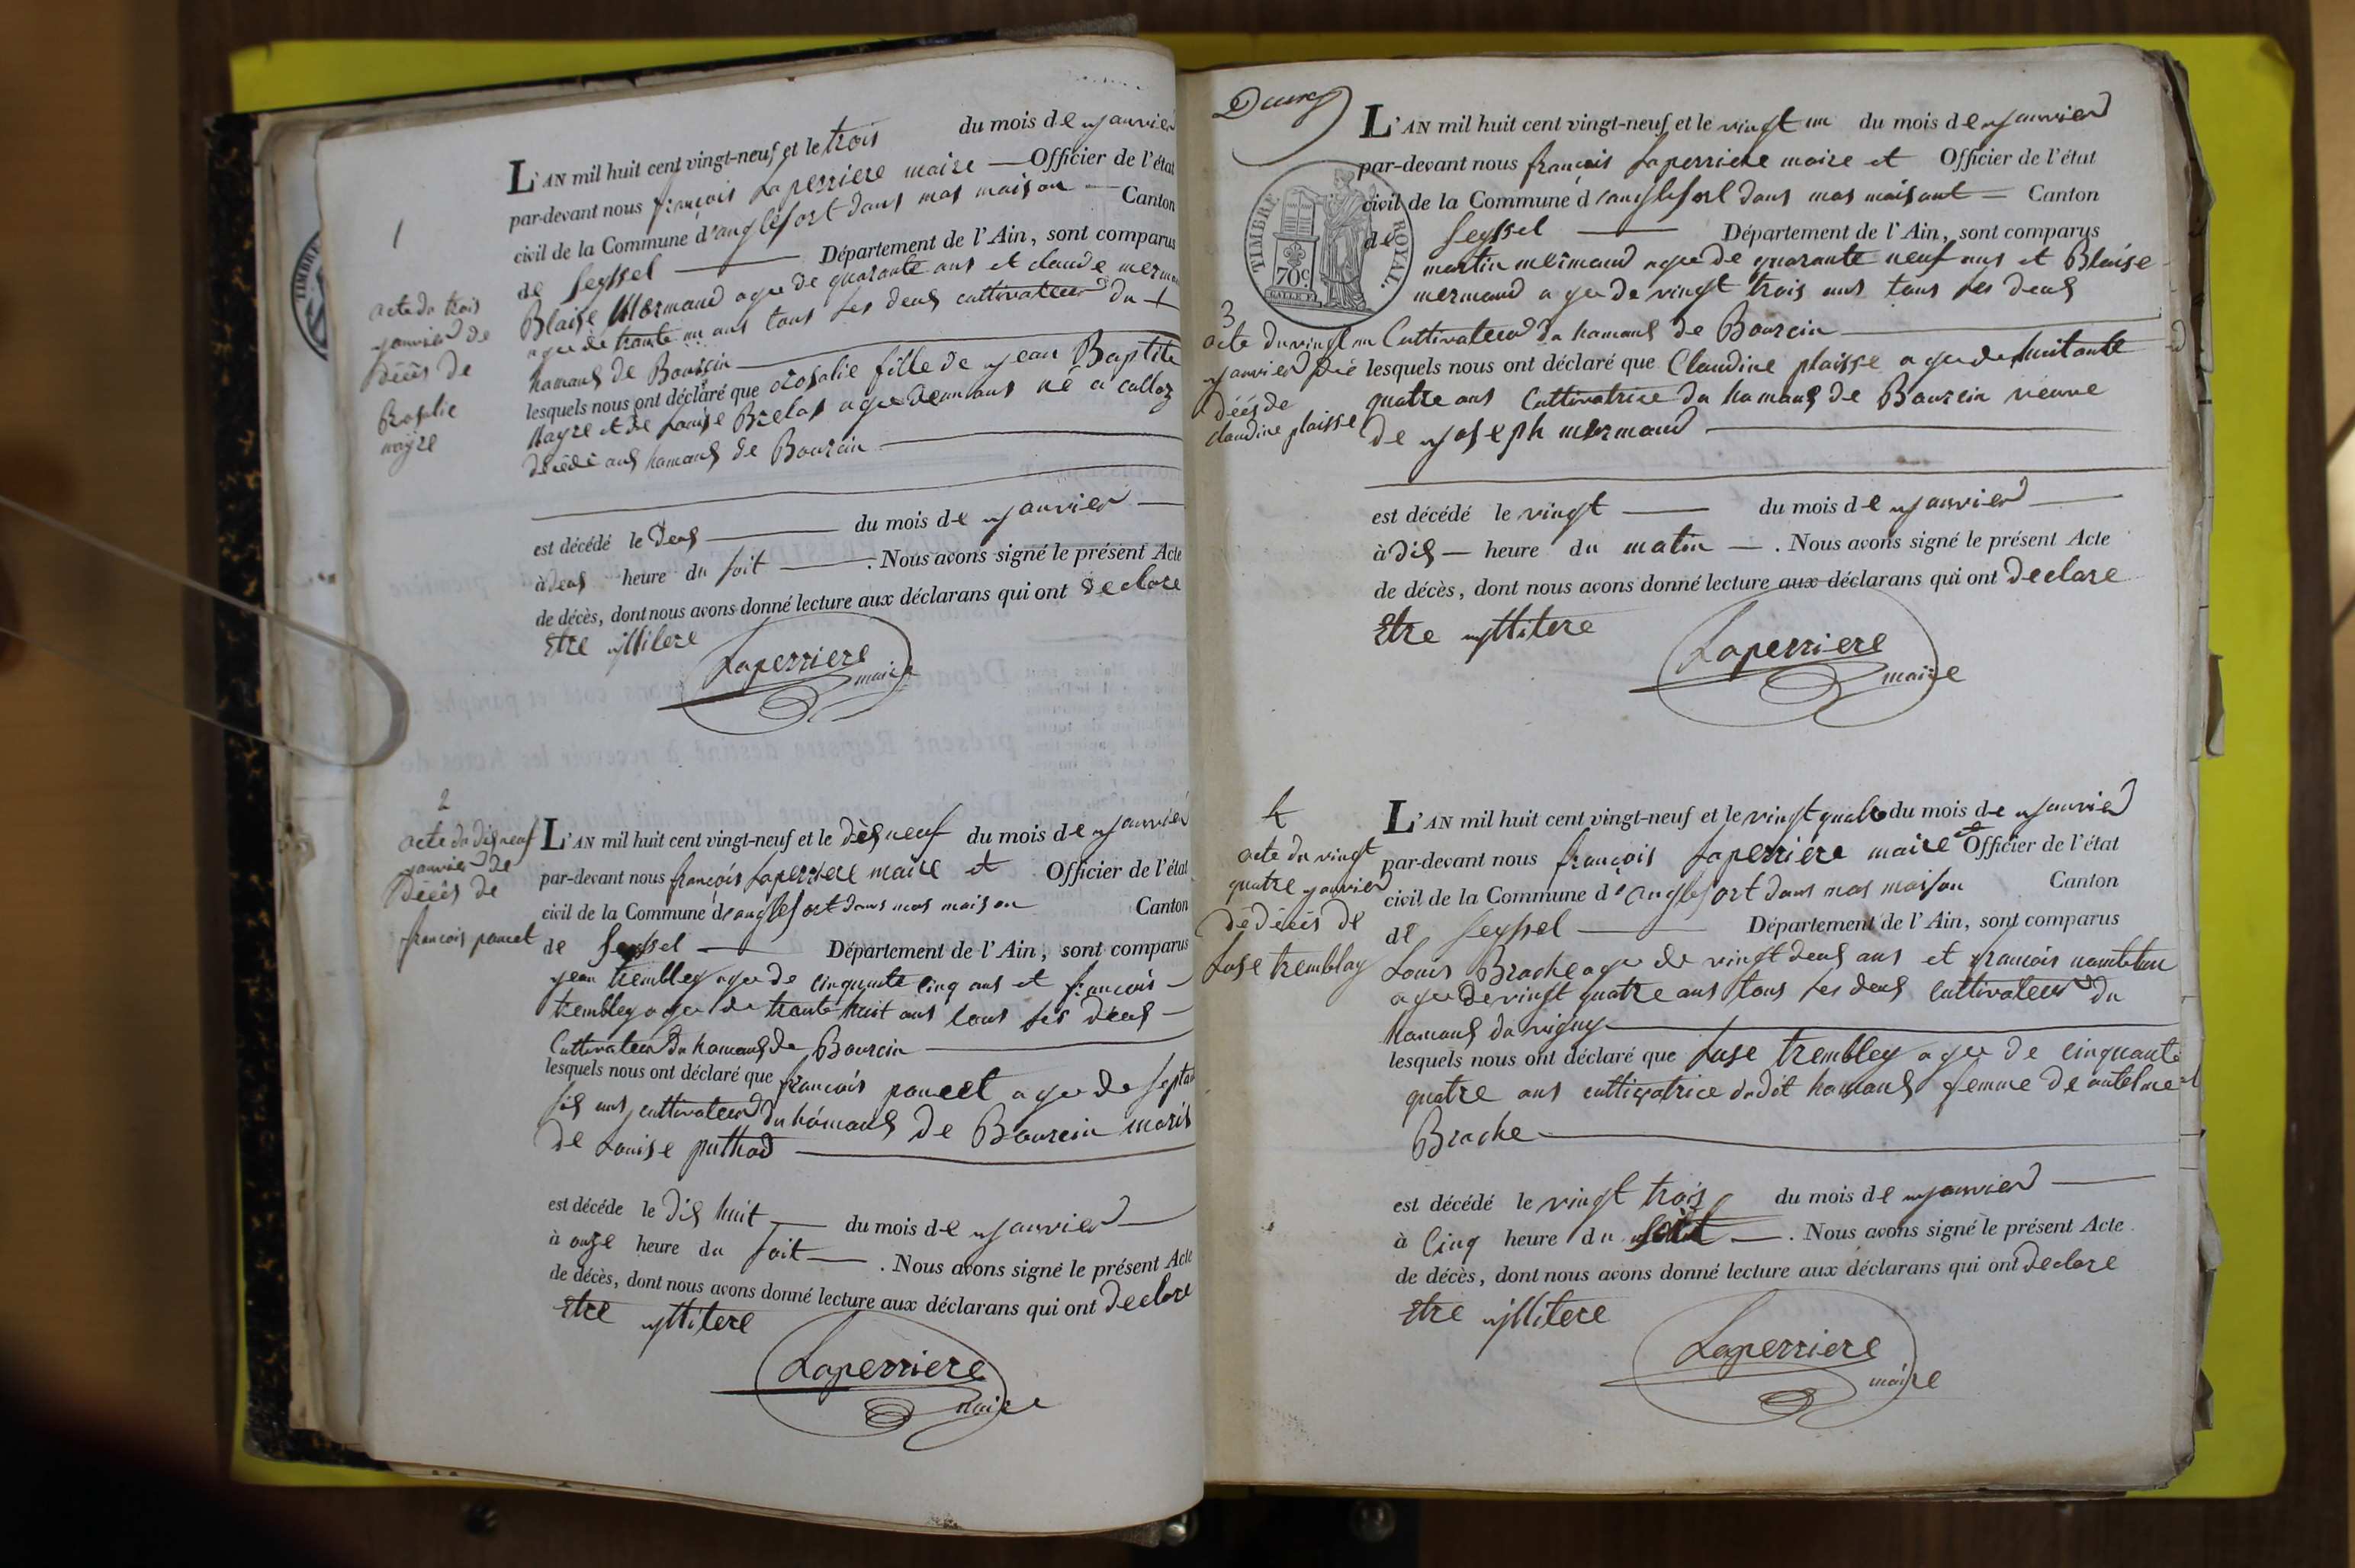 1
acte du trois
janvier de
décès de
Rosalie
mayre
L'AN mil huit cent vingt-neuf et le trois du mois de janvier
par-devant nous françois Laperriere maire Officier de l'état
civil de la Commune d'anglefort dans mas maison Canton
de Seyssel Département de l'Ain, sont comparus
Blaise Mermand agee de quarante ans et claude merma
agee de trante un ans tous les deux cultivateur du
hamaux de Bourcin
lesquels nous ont déclaré que Rosalie fille de jean Baptite
Mayre et de Louise agee de un ans né a culloz
décédé aux hamaux de Bourcin
est décédé le deux du mois de janvier
à deux heure du soit. Nous avons signé le présent Acte
de décès, dont nous avons donné lecture aux déclarans qui ont declare
Etre illitere
Laperriere
maire
2
acte du dix neuf
janvier de
décès de
francois poncet
L'AN mil huit cent vingt-neuf et le dix neuf du mois de janvier
par-devant nous françois Laperriere maire et Officier de l'état
civil de la Commune d'anglefort dans mas maison Canton
de Seyssel Département de l'Ain, sont comparus
jean trembley agee de cinquante cinq ans et francois
trembley agee de trante huit ans tous les deux
Cultivateur du hamaux de Bourcin
lesquels nous ont déclaré que francois poncet agee de septan
six ans cultivateur du hamaux de Bourcin maris
de Louise puthod
est décédé le dix huit du mois de janvier
à onze heure du soit. Nous avons signé le présent Acte
de décès, dont nous avons donné lecture aux déclarans qui ont declare
Etre illitere
Laperriere
maire
TIMBRE ROYAL.
70 c.
3
acte du vingt un
janvier
décés de
claudine plaisse
L'AN mil huit cent vingt-neuf et le vingt un du mois de janvier
par-devant nous françois Laperriere maire et Officier de l'état
civil de la Commune d'anglefort dans mas maisont Canton
de Seyssel Département de l'Ain, sont comparus
martin mermand agee de quarante neuf ans et Blaise
mermand agee de vingt trois ans tous les deux
Cultivateur du hamaux de Bourcin
lesquels nous ont déclaré que Claudine plaisse agee de huitante
quatre ans Cultivatrice du hamaux de Bourcin veuve
de joseph mermand
est décédé le vingt du mois de janvier
à dix heure du matin. Nous avons signé le présent Acte
de décès, dont nous avons donné lecture aux déclarans qui ont declare
Etre illitere
Laperriere
maire
4
acte du vingt
quatre janvier
de décés de
Luse tremblay
L'AN mil huit cent vingt-neuf et le vingt quatre du mois de janvier
par-devant nous francois Laperriere maire et Officier de l'état
civil de la Commune d'anglefort dans mas maison Canton
de Seyssel Département de l'Ain, sont comparus
Louis Brache agee de vingt deux ans et francois
agee de vingt quatre ans tous les deux cultivateur du
hamaux du vigny
lesquels nous ont déclaré que Luse trembley agee de cinquante
quatre ans cultivatrice dudit hamaux femme de antelme
Brache
est décédé le vingt trois du mois de janvier
à Cinq heure du soit. Nous avons signé le présent Acte
de décès, dont nous avons donné lecture aux déclarans qui ont declare
Etre illitere
Laperriere
maire